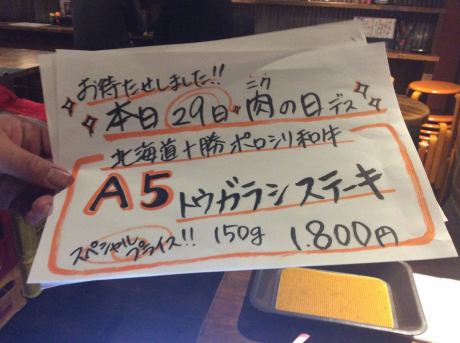 お待たせしました!!
本日29日・肉の日デス
ニク
北海道十勝ポロシリ和牛
A5トウガラシステーキ
スペシャルプライス!! 150g 1.800円